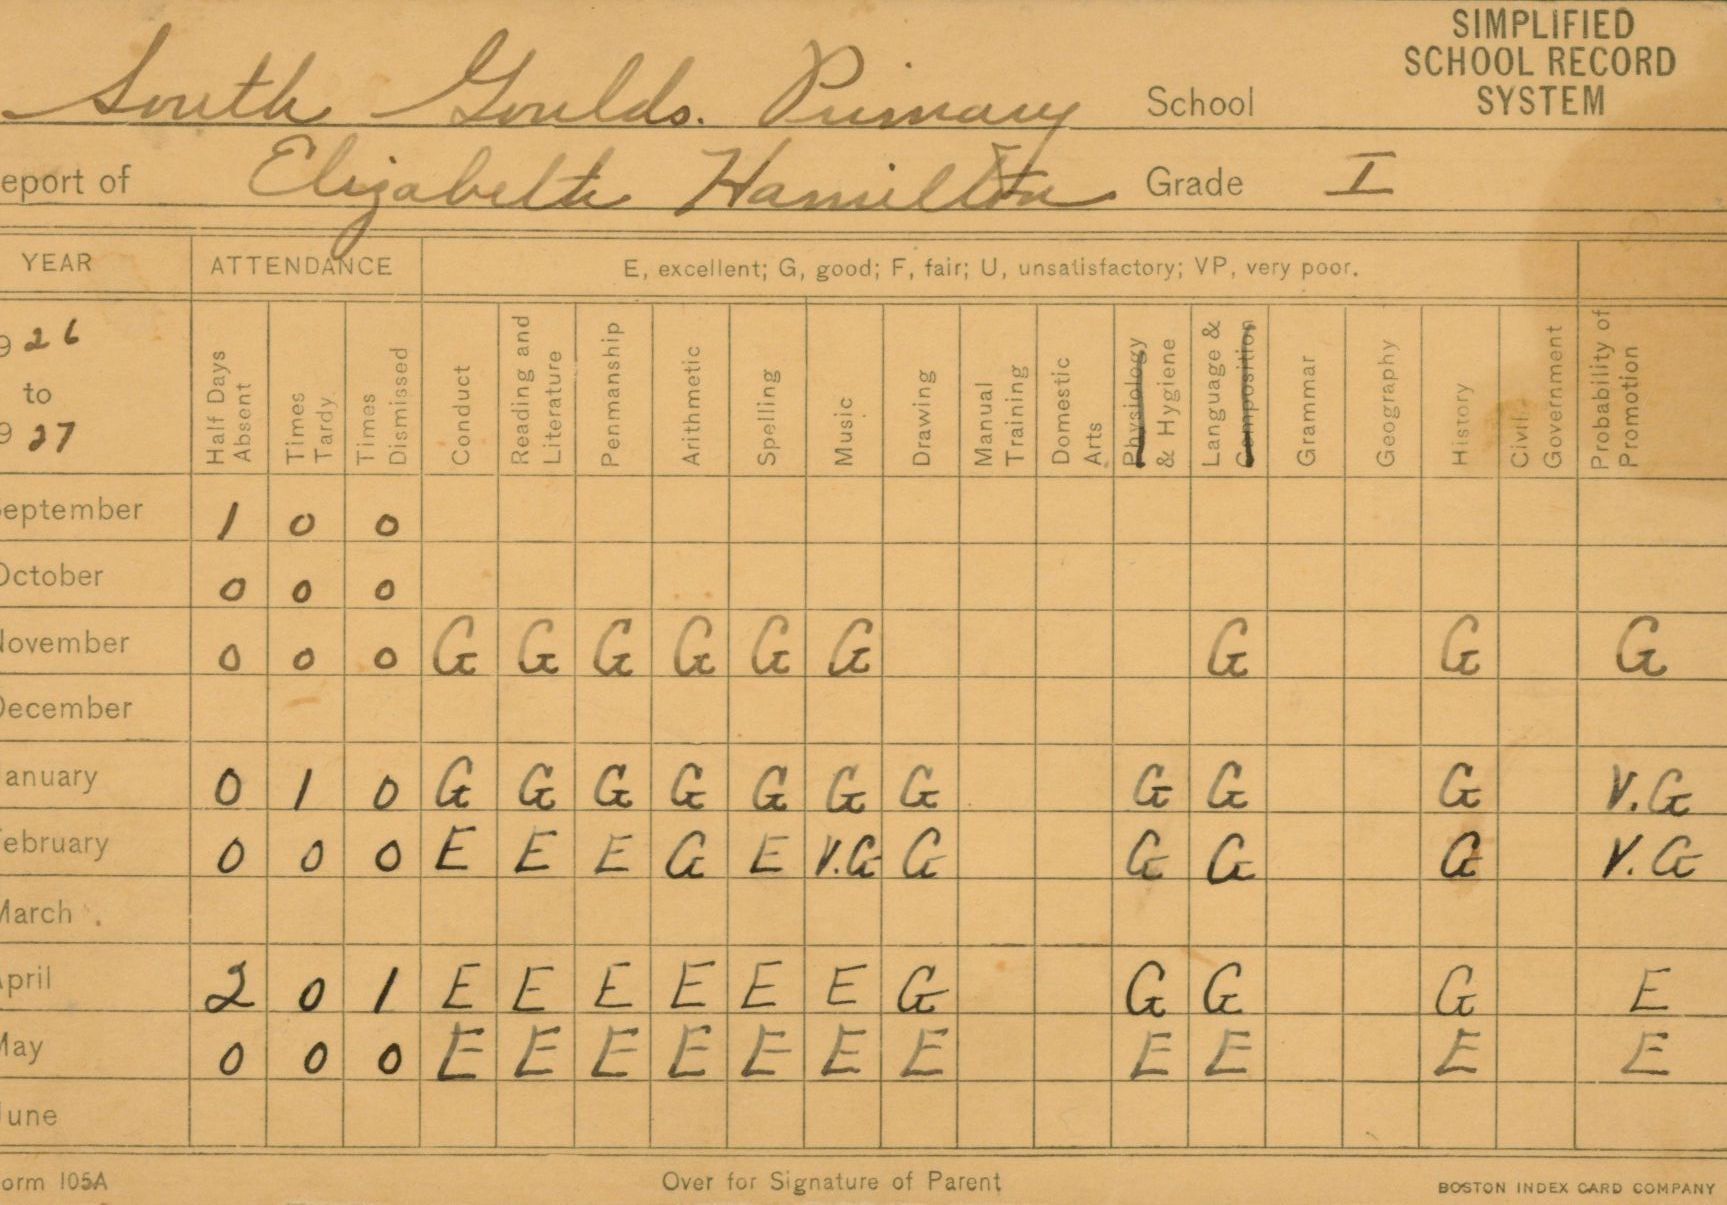 SIMPLIFIED
SCHOOL RECORD
SYSTEM
South Goulds. Primary School
eport of Elizabeth Hamilton Grade I
YEAR ATTENDANCE E, excellent; G, good; F, fair; U, unsatisfactory; VP, very poor.
9 26 to 9 27 Half Days Absent Times Tardy Times Dismissed Conduct Reading and Literature Penmanship Arithmetic Spelling Music Drawing Manual Training Domestic Arts Physiology & Hygiene Language & Composition Grammar Geography History Civil Government Probability of Promotion
September 1 0 0
October 0 0 0
November 0 0 0 G G G G G G G G G
December
January 0 1 0 G G G G G G G G G G V.G
February 0 0 0 E E E G E V.G G G G G V.G
March
April 2 0 1 E E E E E E G G G G E
May 0 0 0 E E E E E E E E E E E
June
orm 105A Over for Signature of Parent BOSTON INDEX CARD COMPANY